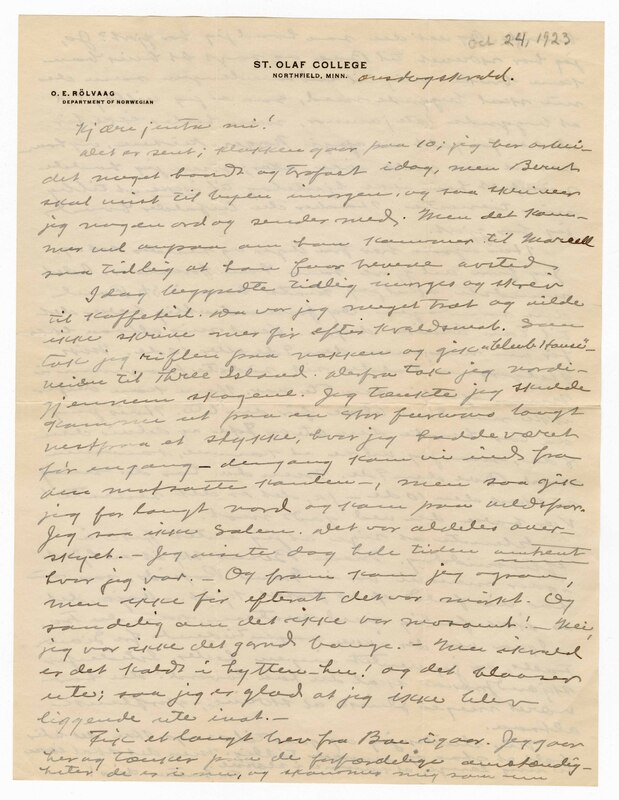 Oct 24, 1923
ST. OLAF COLLEGE
NORTHFIELD, MINN.
onsdagskvæld.
O. E. RÖLVAAG
DEPARTMENT OF NORWEGIAN
Kjære jenta mi!
Det er sent; klokken gaar paa 10; jeg har arbei-
det meget haardt og trøfast idag, men Bernt
skal visst til byen imorgen, og saa skriver
jeg nogen ord og sender med. Men det kom-
mer vel anpaa om han kommer til Marcell
saa tidlig at han faar brevene avsted.
Idag begyndte tidlig imorges og skrev
til kaffetid. Da var jeg meget træt og vilde
ikke skrive mer før efter kvældsmat. Saa
tok jeg riflen paa nakken og gik "Club House"-
veien til Three Island. Derfra tok jeg nord i-
gjennem skogene. Jeg tænkte jeg skulde
komme ut paa en stor furumo langt
nordfra et stykke, hvor jeg hadde været
før engang – dengang kom vi ind fra
den motsatte kanten –, men saa gik
jeg for langt nord og kom paa vildspor.
Jeg saa ikke solen. Det var aldeles over-
skyet. – Jeg visste dog hele tiden omtrent
hvor jeg var. – Og fram kom jeg ogsaa,
men ikke før efterat det var mørkt. Og
sandelig om det ikke var morsomt! – Nei,
jeg var ikke det grand bange. – Men ikvæld
er det kaldt i hytten – hu! og det blaaser
ute; saa jeg er glad at jeg ikke blev
liggende ute inat. –
Fik et langt brev fra Boe igaar. Jeg gaar
her og tænker paa de forfærdelige omstændig-
heter de er i nu, og skammer mig som en